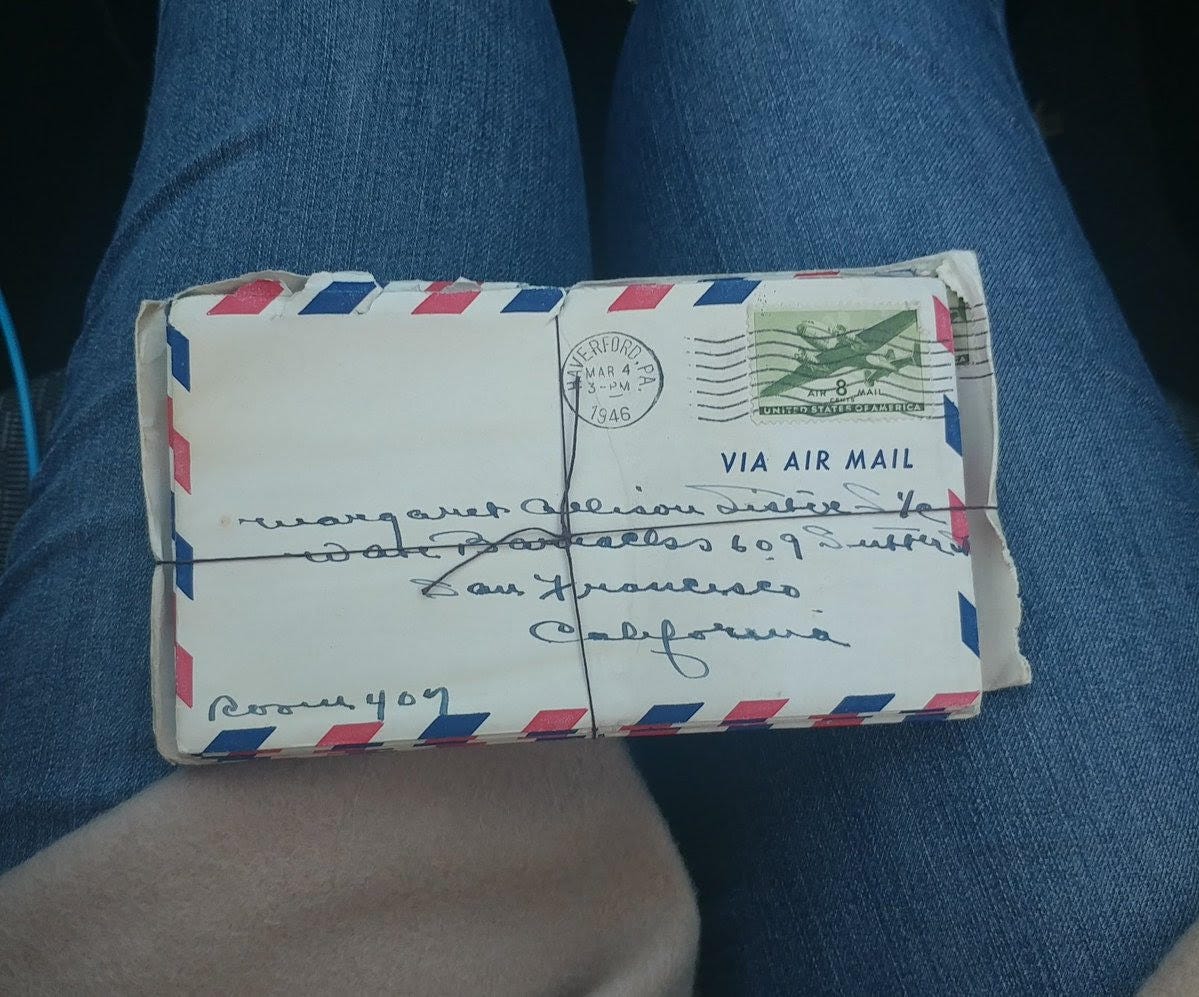 HAVERFORD, PA.
MAR 4
3-PM
1946
AIR 8 MAIL
CENTS
UNITED STATES OF AMERICA
VIA AIR MAIL
Margaret Allison S 1/c
Wave Barracks 609 Sutter St
San Francisco
California
Room 409